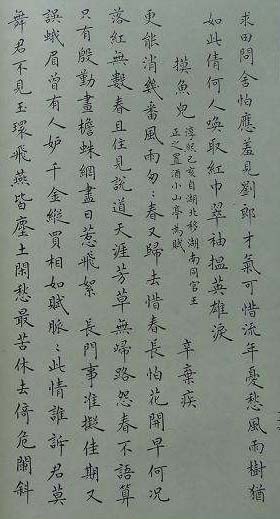 求田問舍怕應羞見劉郎才氣可惜流年憂愁風雨樹猶
如此倩何人喚取紅巾翠袖搵英雄淚
摸魚兒
淳熙己亥自湖北移湖南同官王
正之置酒小山亭為賦
辛棄疾
更能消幾番風雨匆〻春又歸去惜春長怕花開早何況
落紅無數春且住見說道天涯芳草無歸路怨春不語算
只有殷勤畫檐蛛網盡日惹飛絮 長門事准擬佳期又
誤蛾眉曾有人妒千金縱買相如賦脈〻此情誰訴君莫
舞君不見玉環飛燕皆塵土閑愁最苦休去倚危闌斜